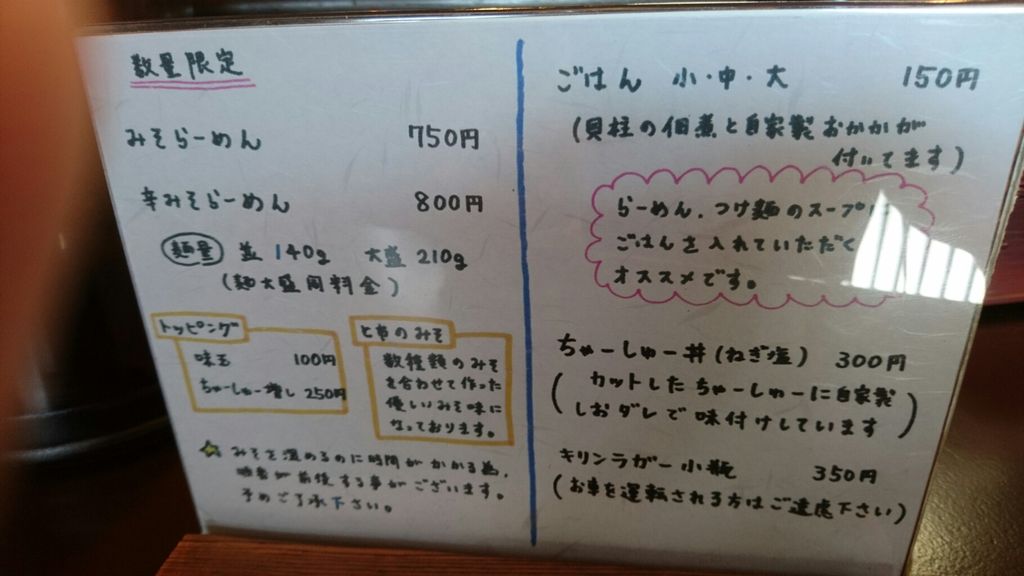 数量限定
みそらーめん 750円
辛みそらーめん 800円
麺量 並 140g 大盛 210g
(麺大盛同料金)
トッピング
味玉 100円
ちゃーしゅー増し 250円
のみそ
数種類のみそ
を合わせて作った
優しいみそ味に
なっております。
みそを温めるのに時間がかかる為、
順番が前後する事がございます。
予めご了承下さい。
ごはん 小・中・大 150円
(貝柱の佃煮と自家製おかかが
付いてます)
らーめん、つけ麺のスープ
ごはんを入れていただく
オススメです。
ちゃーしゅー丼(ねぎ塩) 300円
(カットしたちゃーしゅーに自家製
しおダレで味付けしています)
キリンラガー小瓶 350円
(お車を運転される方はご遠慮下さい)